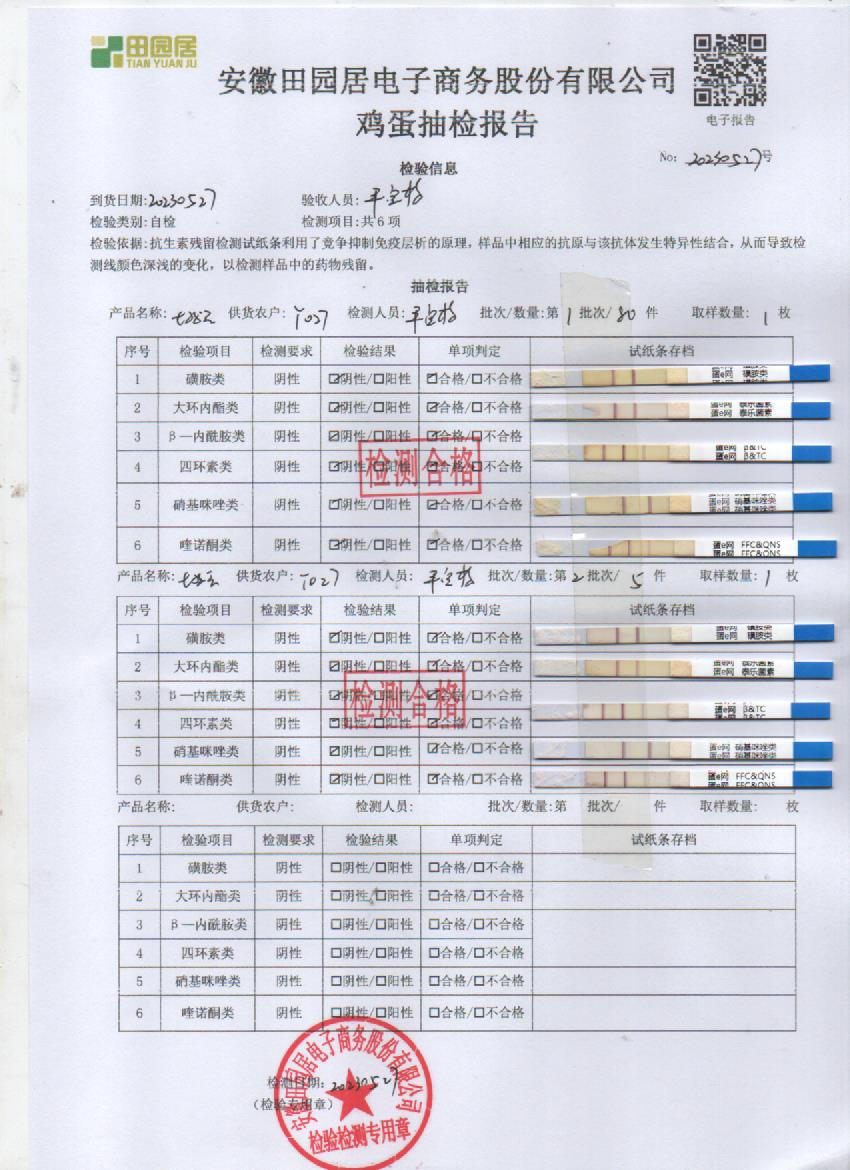 田园居
TIAN YUAN JU
安徽田园居电子商务股份有限公司
鸡蛋抽检报告
电子报告
No: 20230527号
检验信息
到货日期:20230527 验收人员:
检验类别:自检 检测项目:共6项
检验依据:抗生素残留检测试纸条利用了竞争抑制免疫层析的原理，样品中相应的抗原与该抗体发生特异性结合，从而导致检
测线颜色深浅的变化，以检测样品中的药物残留。
抽检报告
产品名称: 供货农户:T027 检测人员: 批次/数量:第1批次/80件 取样数量:1枚
序号 检验项目 检测要求 检验结果 单项判定 试纸条存档
1 磺胺类 阴性 ☑阴性/☐阳性 ☑合格/☐不合格 蛋e网 磺胺类
2 大环内酯类 阴性 ☑阴性/☐阳性 ☑合格/☐不合格 蛋e网 泰乐菌素
3 β—内酰胺类 阴性 ☑阴性/☐阳性 ☑合格/☐不合格 蛋e网 β&TC
4 四环素类 阴性 ☑阴性/☐阳性 ☑合格/☐不合格
检测合格
5 硝基咪唑类 阴性 ☑阴性/☐阳性 ☑合格/☐不合格 蛋e网 硝基咪唑类
6 喹诺酮类 阴性 ☑阴性/☐阳性 ☑合格/☐不合格 蛋e网 FFC&QNS
产品名称: 供货农户:T027 检测人员: 批次/数量:第2批次/5件 取样数量:1枚
序号 检验项目 检测要求 检验结果 单项判定 试纸条存档
1 磺胺类 阴性 ☑阴性/☐阳性 ☑合格/☐不合格 蛋e网 磺胺类
2 大环内酯类 阴性 ☑阴性/☐阳性 ☑合格/☐不合格 蛋e网 泰乐菌素
3 β—内酰胺类 阴性 ☑阴性/☐阳性 ☑合格/☐不合格 蛋e网 β&TC
检测合格
4 四环素类 阴性 ☑阴性/☐阳性 ☑合格/☐不合格
5 硝基咪唑类 阴性 ☑阴性/☐阳性 ☑合格/☐不合格 蛋e网 硝基咪唑类
6 喹诺酮类 阴性 ☑阴性/☐阳性 ☑合格/☐不合格 蛋e网 FFC&QNS
产品名称: 供货农户: 检测人员: 批次/数量:第 批次/ 件 取样数量: 枚
序号 检验项目 检测要求 检验结果 单项判定 试纸条存档
1 磺胺类 阴性 ☐阴性/☐阳性 ☐合格/☐不合格
2 大环内酯类 阴性 ☐阴性/☐阳性 ☐合格/☐不合格
3 β—内酰胺类 阴性 ☐阴性/☐阳性 ☐合格/☐不合格
4 四环素类 阴性 ☐阴性/☐阳性 ☐合格/☐不合格
5 硝基咪唑类 阴性 ☐阴性/☐阳性 ☐合格/☐不合格
6 喹诺酮类 阴性 ☐阴性/☐阳性 ☐合格/☐不合格
安徽田园居电子商务股份有限公司
检测日期:20230527
（检验专用章）
检验检测专用章